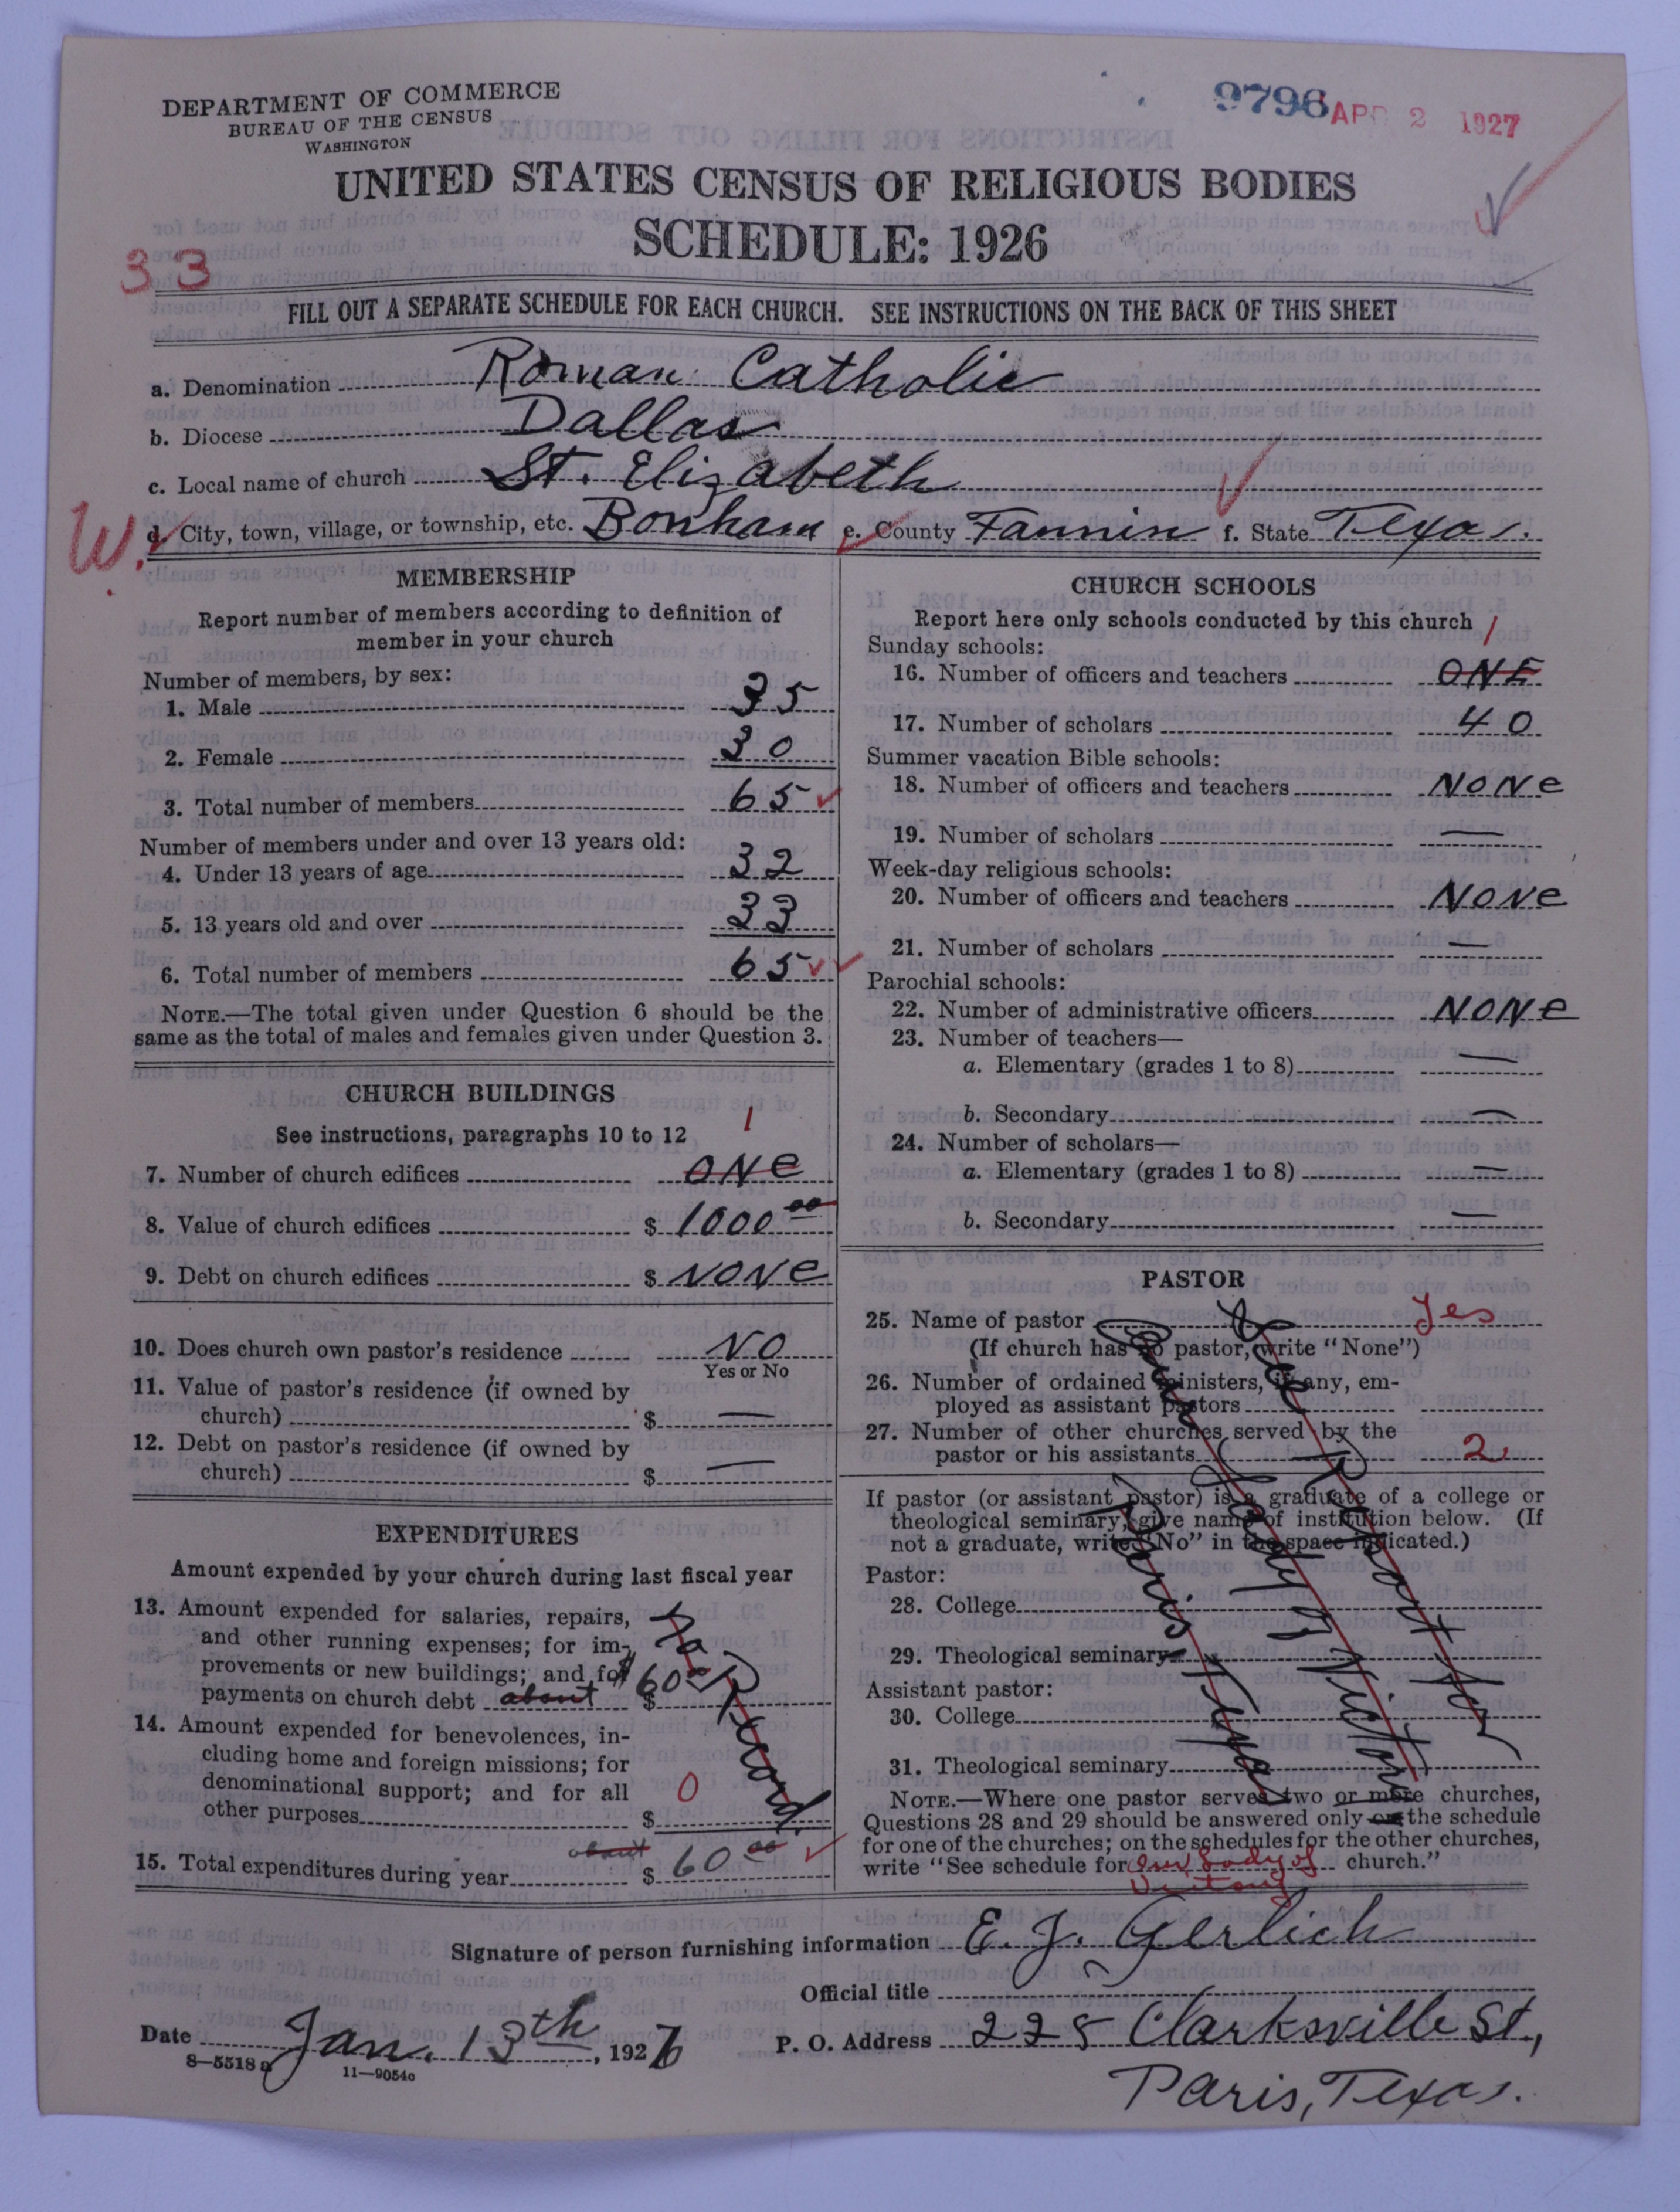 DEPARTMENT OF COMMERCE
BUREAU OF THE CENSUS
WASHINGTON
9796 APR 2 1927
UNITED STATES CENSUS OF RELIGIOUS BODIES
SCHEDULE: 1926
33
FILL OUT A SEPARATE SCHEDULE FOR EACH CHURCH. SEE INSTRUCTIONS ON THE BACK OF THIS SHEET
a. Denomination Roman Catholic
b. Diocese Dallas
c. Local name of church St. Elizabeth
W. d. City, town, village, or township, etc. Bonham e. County Fannin f. State Texas.
MEMBERSHIP
Report number of members according to definition of
member in your church
Number of members, by sex:
1. Male 35
2. Female 30
3. Total number of members 65
Number of members under and over 13 years old:
4. Under 13 years of age 32
5. 13 years old and over 33
6. Total number of members 65
NOTE.—The total given under Question 6 should be the
same as the total of males and females given under Question 3.
CHURCH BUILDINGS
See instructions, paragraphs 10 to 12
1
7. Number of church edifices ONE
8. Value of church edifices $ 1000 00
9. Debt on church edifices $ NONE
10. Does church own pastor's residence NO
Yes or No
11. Value of pastor's residence (if owned by
church) $ —
12. Debt on pastor's residence (if owned by
church) $ —
EXPENDITURES
Amount expended by your church during last fiscal year
13. Amount expended for salaries, repairs,
and other running expenses; for im-
provements or new buildings; and for
payments on church debt about $ $60 00
No Record.
14. Amount expended for benevolences, in-
cluding home and foreign missions; for
denominational support; and for all
other purposes $ 0
15. Total expenditures during year about $ 60 00
CHURCH SCHOOLS
Report here only schools conducted by this church
Sunday schools:
1
16. Number of officers and teachers ONE
17. Number of scholars 40
Summer vacation Bible schools:
18. Number of officers and teachers NONE
19. Number of scholars —
Week-day religious schools:
20. Number of officers and teachers NONE
21. Number of scholars —
Parochial schools:
22. Number of administrative officers NONE
23. Number of teachers—
a. Elementary (grades 1 to 8) —
b. Secondary —
24. Number of scholars—
a. Elementary (grades 1 to 8) —
b. Secondary —
PASTOR
25. Name of pastor Yes
(If church has no pastor, write "None")
26. Number of ordained ministers, if any, em-
ployed as assistant pastors
27. Number of other churches served by the
pastor or his assistants 2
If pastor (or assistant pastor) is a graduate of a college or
theological seminary, give name of institution below. (If
not a graduate, write "No" in the space indicated.)
Pastor:
28. College
29. Theological seminary
Assistant pastor:
30. College
31. Theological seminary
See Report for
Our Lady of Victory
Paris, Texas
NOTE.—Where one pastor serves two or more churches,
Questions 28 and 29 should be answered only on the schedule
for one of the churches; on the schedules for the other churches,
write "See schedule for Our Lady of church."
Victory
Signature of person furnishing information E. J. Gerlich
Official title
Date Jan. 13th, 1927 P. O. Address 225 Clarksville St.,
8—5518 a 11—9054c
Paris, Texas.